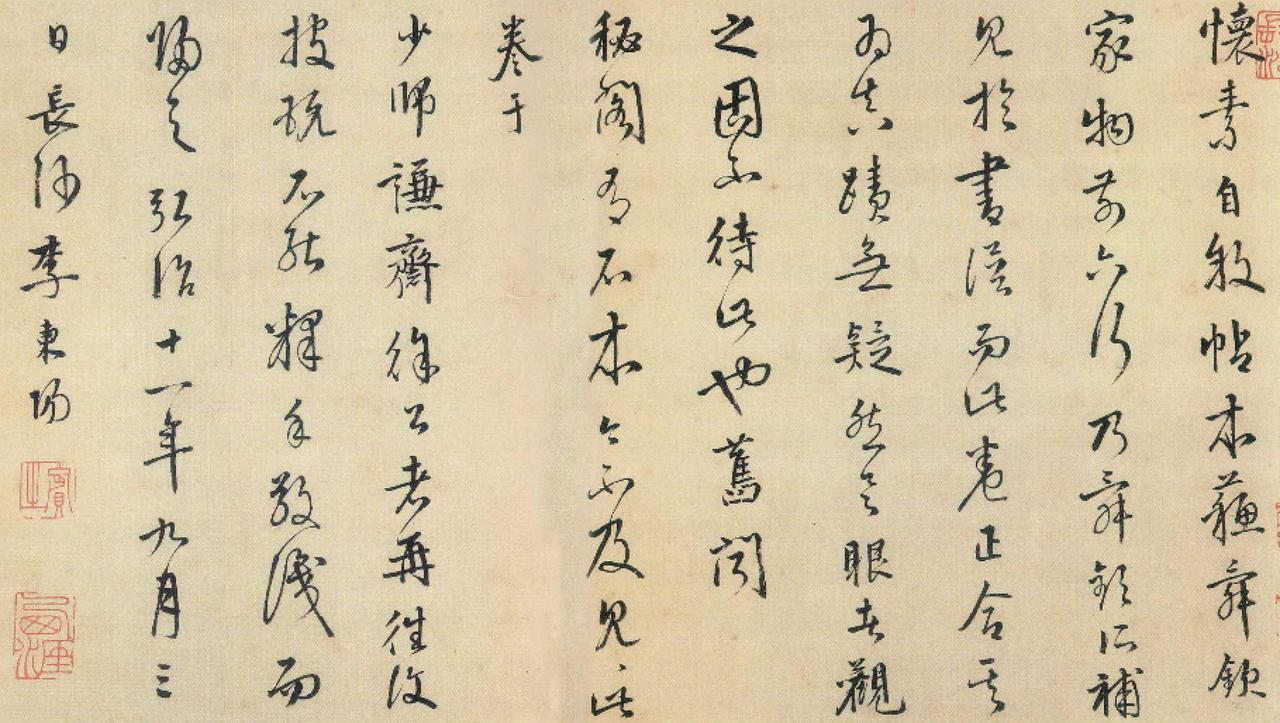 懷素自敘帖本蘇舜欽
家物前六行乃舜欽所補
見於書譜而此卷正合其
為真蹟無疑然具眼者觀
之固不待此也舊聞
秘閣有石本今不及見見此
卷于
少師謙齋徐公老再往復
披玩不能釋手敬識而
歸之弘治十一年九月三
日長沙李東陽